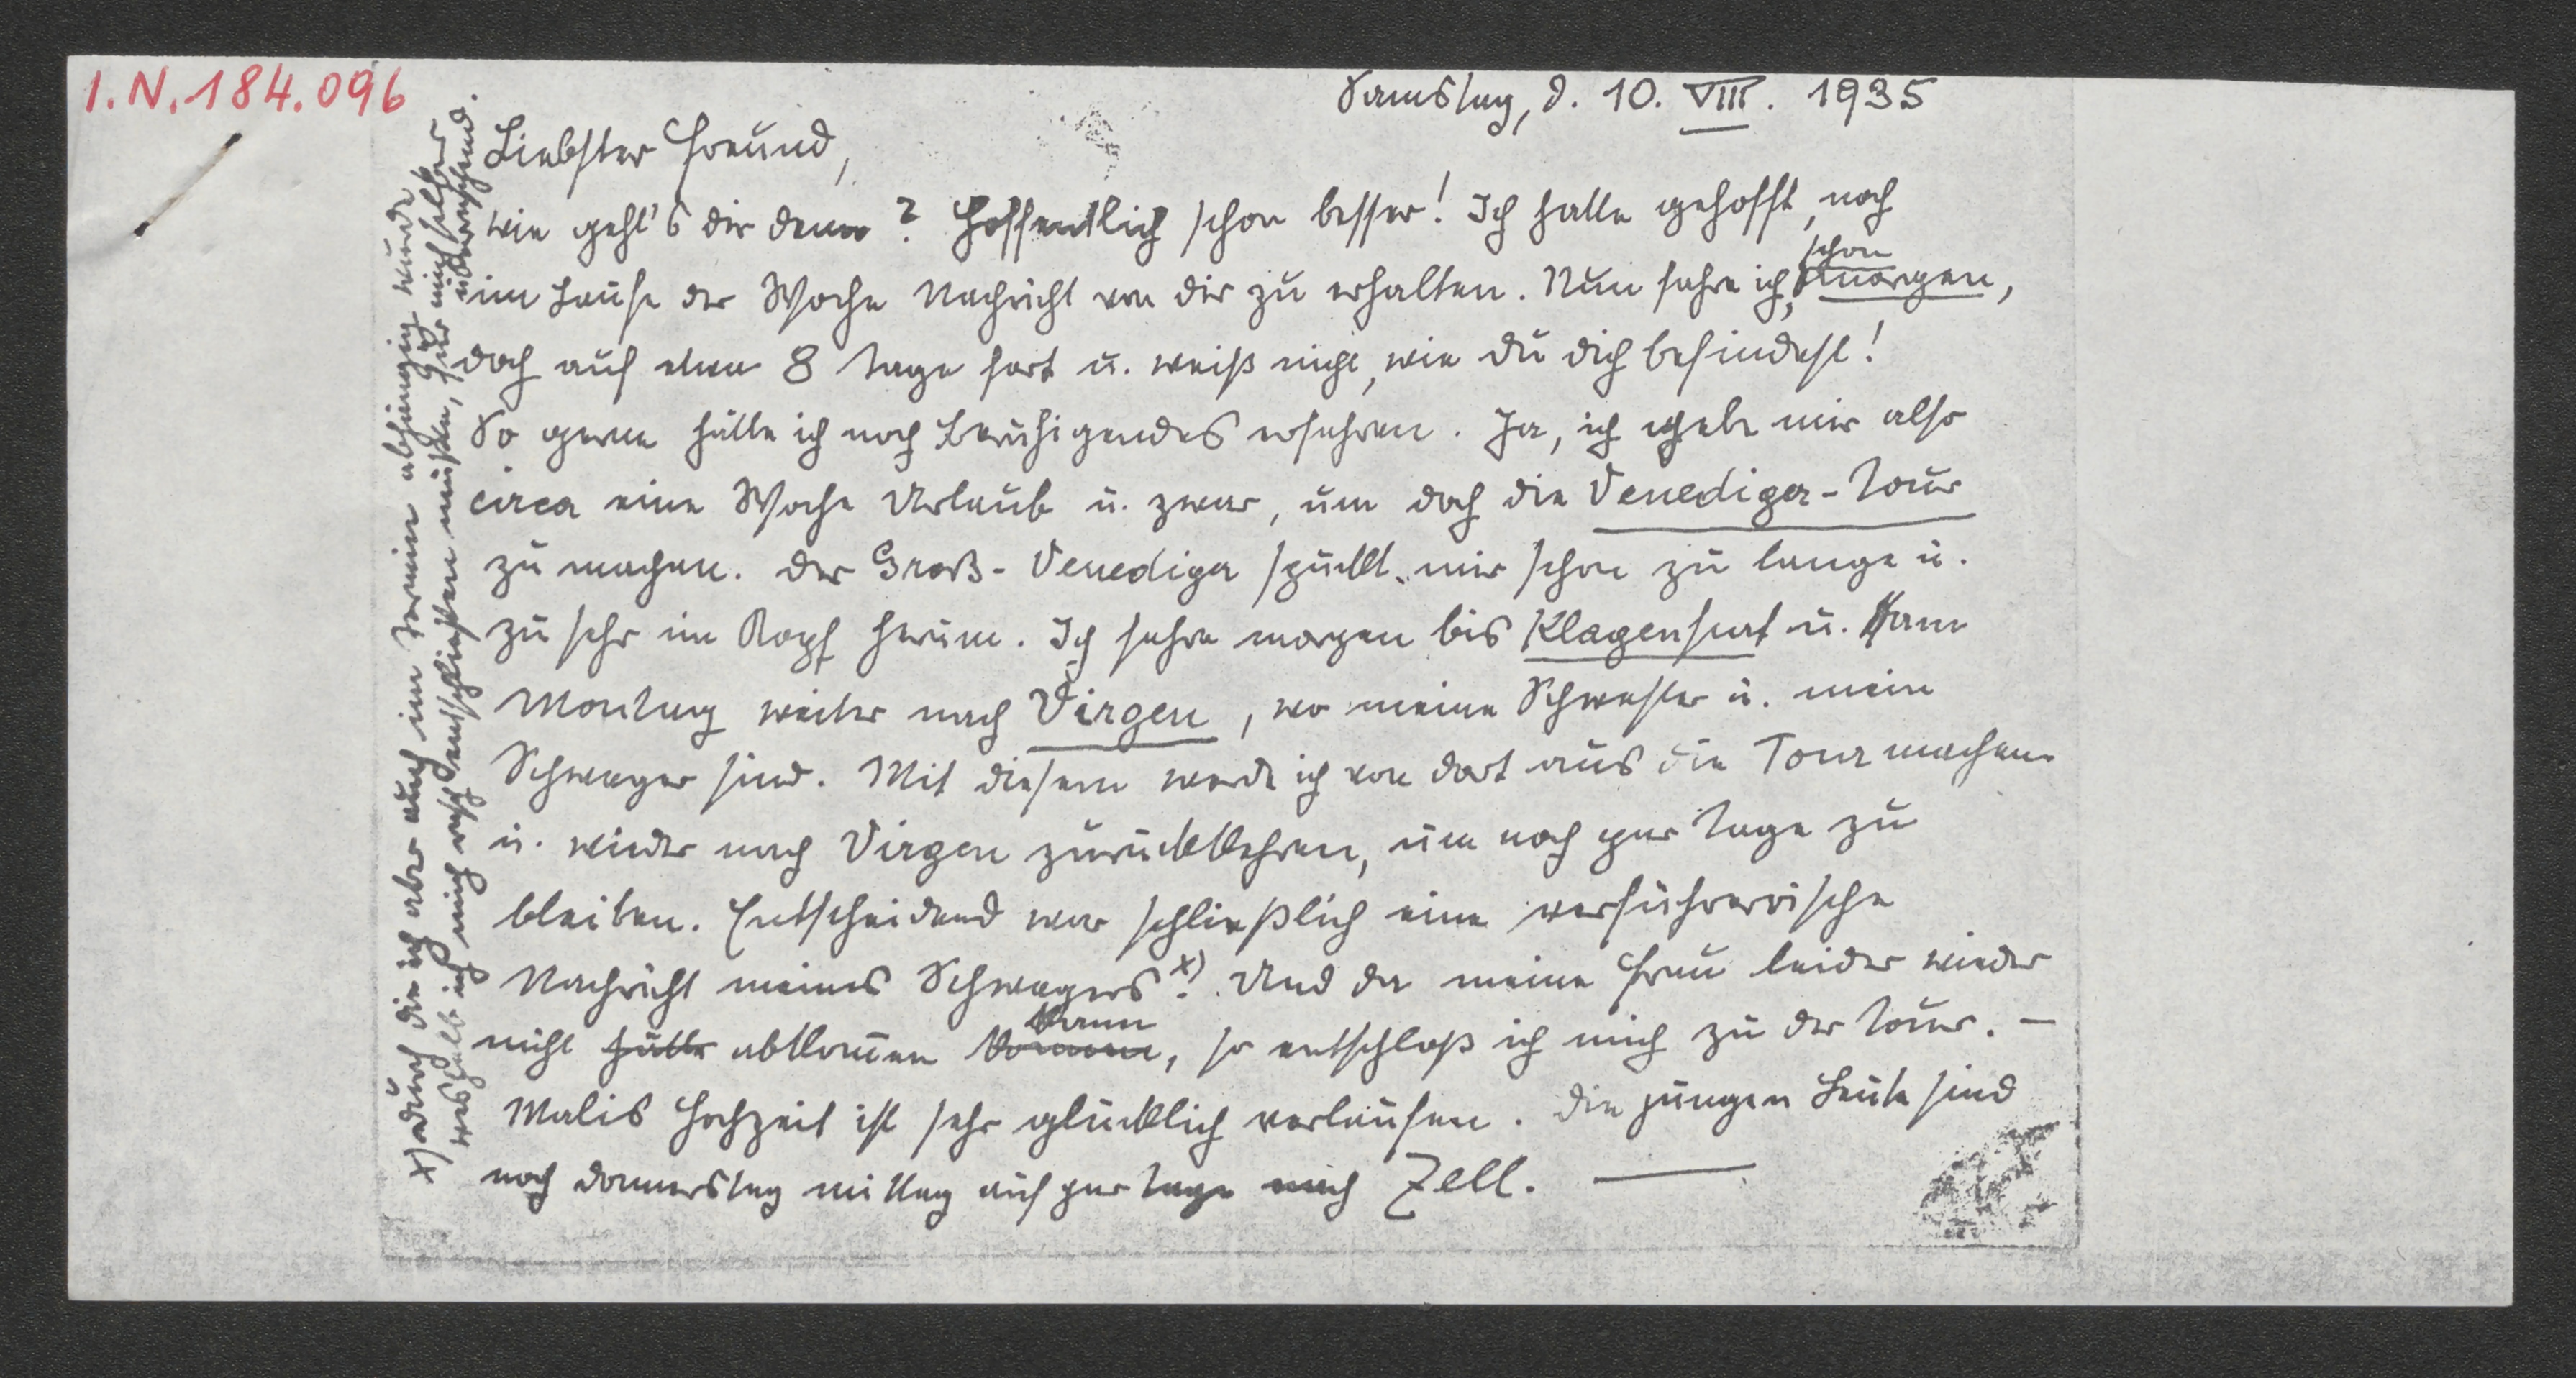 I.N. 184.096
Samstag, d. 10. VIII. 1935
Liebster Freund,
wie geht's dir denn? Hoffentlich schon besser! Ich hatte gehofft, noch
im Laufe der Woche Nachricht von dir zu erhalten. Nun fahre ich, schon morgen,
doch auf etwa 8 Tage fort u. weiß nicht, wie du dich befindest!
So gerne hätte ich noch Beruhigendes erfahren. Ja, ich gebe mir also
circa eine Woche Urlaub u. zwar, um doch die Venediger-Tour
zu machen. Der Groß-Venediger spuckt mir schon zu lange u.
zu sehr im Kopf herum. Ich fahre morgen bis Klagenfurt u. am
Montag weiter nach Virgen, wo meine Schwester u. mein
Schwager sind. Mit diesem werde ich von dort aus die Tour machen
u. wieder nach Virgen zurückkehren, um noch par Tage zu
bleiben. Entscheidend war schließlich eine verführerische
Nachricht meines Schwagers x). Und da meine Frau leider wieder
nicht hätte abkom̄en kann, so entschloß ich mich zu der Tour. —
Malis Hochzeit ist sehr glücklich verlaufen. Die jungen Leute sind
noch Donnerstag mittag auf par Tage nach Zell. —
x) durch die ich aber auch im Termin abhängig wurde,
weshalb ich mich rasch entschließen mußte, für mich selber
überraschend.